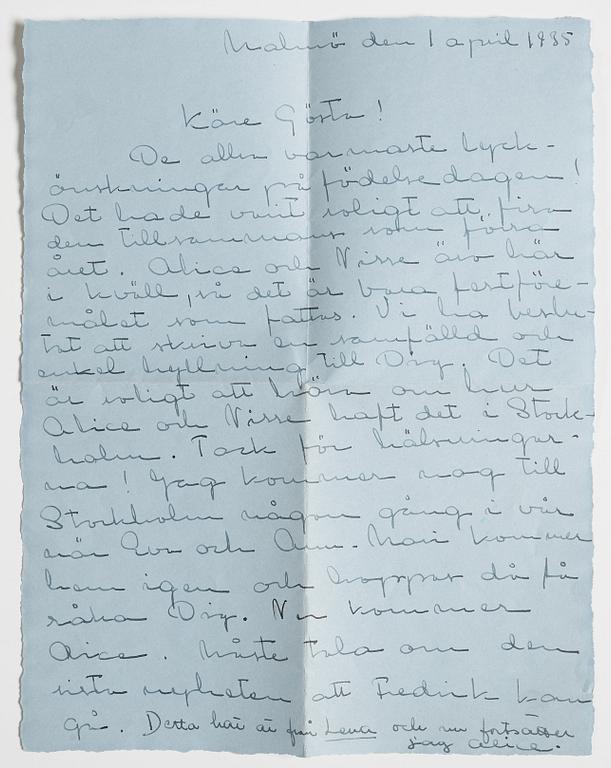 Malmö den 1 april 1985
Käre Gösta!
De allra varmaste lyck-
önskningar på födelsedagen!
Det hade varit roligt att fira
den tillsammans som förra
året. Alice och Nisse är här
i kväll, så det är bara festföre-
målet som fattas. Vi ha beslu-
tat att skriva en samfälld och
enkel hyllning till Dig. Det
är roligt att höra om hur
Alice och Nisse haft det i Stock-
holm. Tack för hälsningar-
na! Jag kommer nog till
Stockholm någon gång i vår
när Eva och Ann-Mari kommer
hem igen och hoppas då få
råka Dig. Nu kommer
Alice. Måste tala om den
sista nyheten att Fredrik kan
gå. Detta här är från Lena och nu fortsätter
jag Alice.